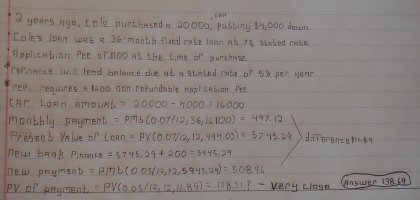 car
2 years ago, Cole purchased a 20000, putting $4,000 down.
Cole's loan was a 36-month fixed rate loan at 7% stated rate.
Application fee of $100 at the time of purchase
refinance will lend balance due at a stated rate of 5% per year
requires a $200 non-refundable application fee
Car Loan amount = 20000 - 4000 = 16000
monthly payment = Pmt(0.07/12,36,16100) = 497.12
Present Value of Loan = PV(0.07/12,12,494.03) = 5745.29
difference 11.84
new bank finance = 5745.29 + 200 = 5945.29
new payment = Pmt(0.05/12,12,5945.29) = 508.96
PV of payment = PV(0.05/12,12,11.84) = 138.31? - very close
Answer 138.69